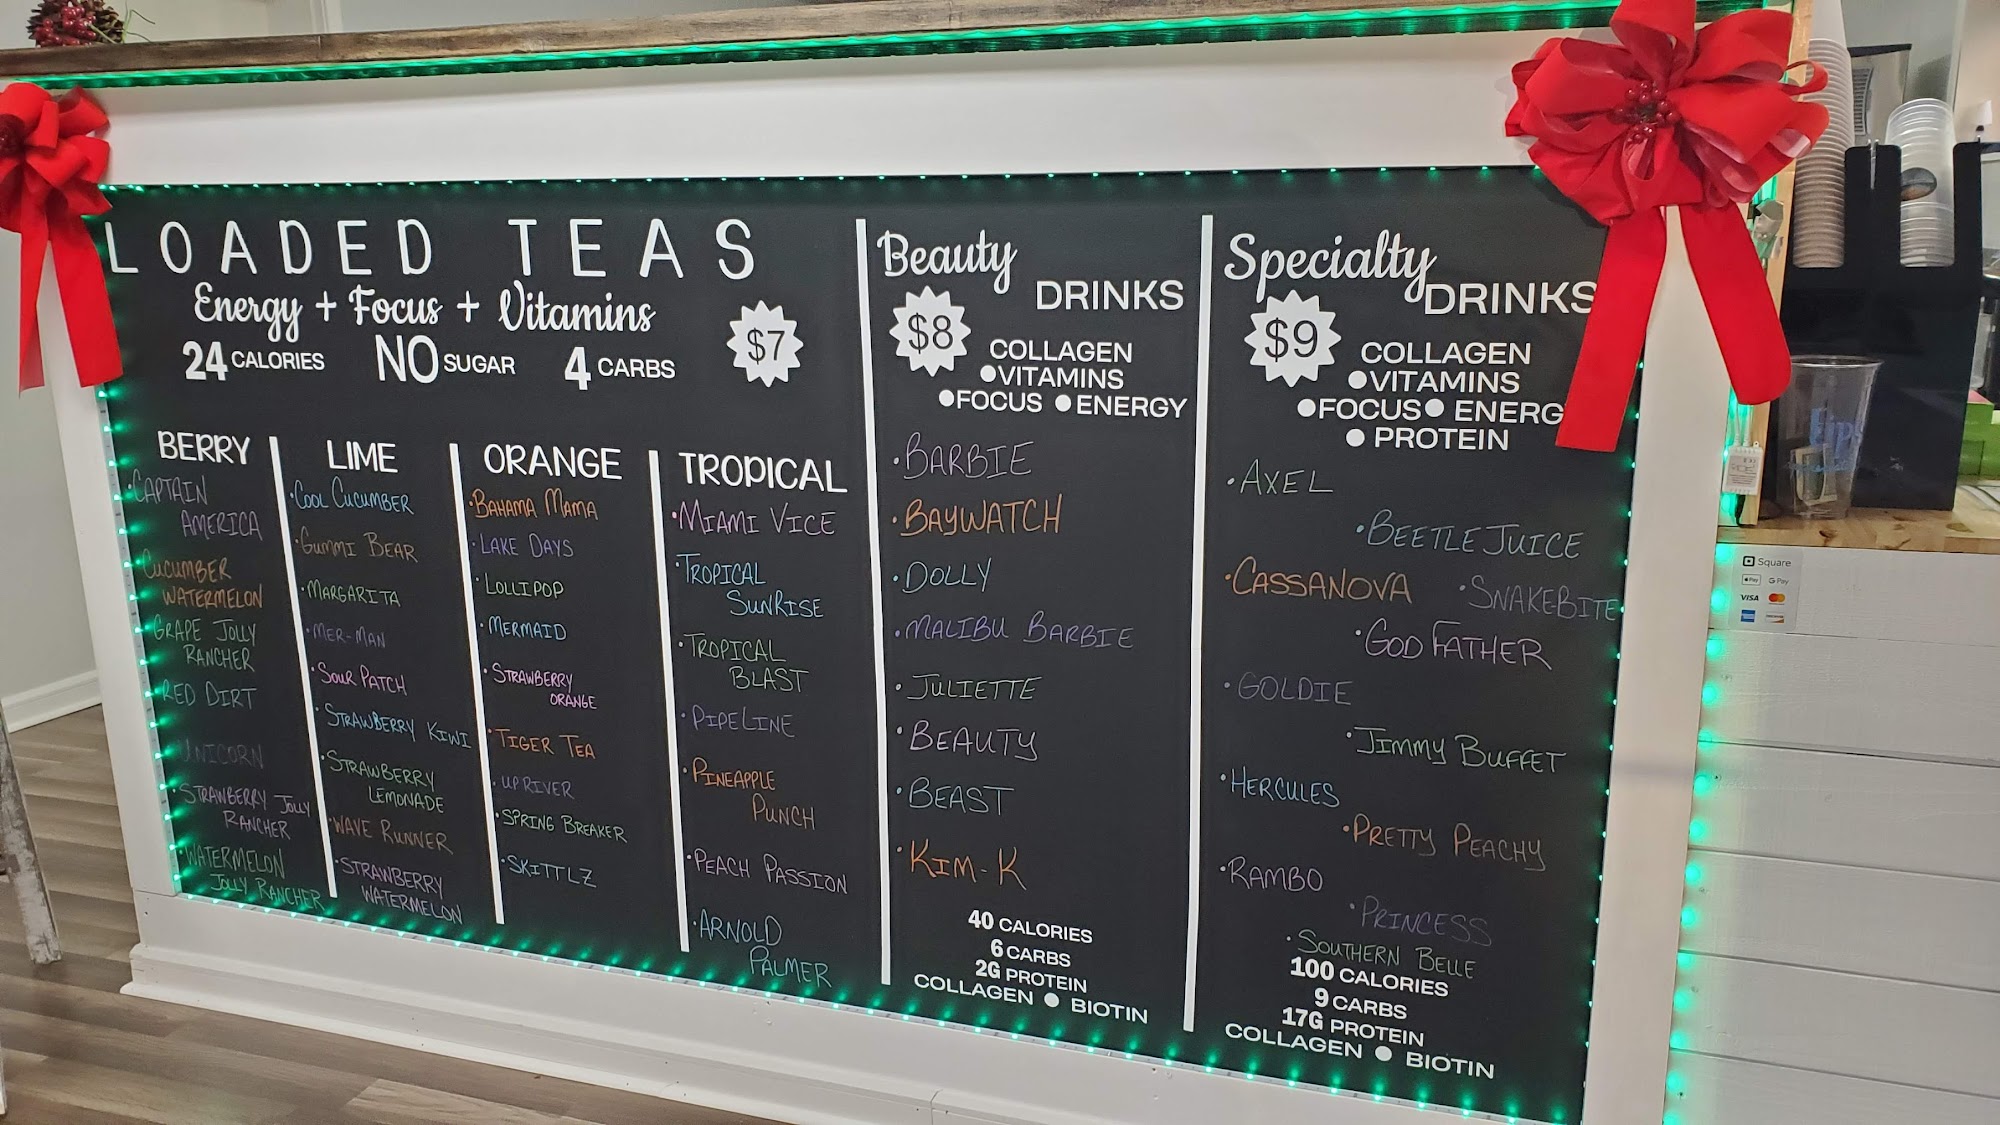 LOADED TEAS
Energy + Focus + Vitamins
24 CALORIES NO SUGAR 4 CARBS
$7
BERRY
•CAPTAIN
AMERICA
•CUCUMBER
WATERMELON
•GRAPE JOLLY
RANCHER
•RED DIRT
•UNICORN
•STRAWBERRY JOLLY
RANCHER
•WATERMELON
JOLLY RANCHER
LIME
•COOL CUCUMBER
•GUMMI BEAR
•MARGARITA
•MER-MAN
•SOUR PATCH
•STRAWBERRY KIWI
•STRAWBERRY
LEMONADE
•WAVE RUNNER
•STRAWBERRY
WATERMELON
ORANGE
•BAHAMA MAMA
•LAKE DAYS
•LOLLIPOP
•MERMAID
•STRAWBERRY
ORANGE
•TIGER TEA
•UPRIVER
•SPRING BREAKER
•SKITTLZ
TROPICAL
•MIAMI VICE
•TROPICAL
SUNRISE
•TROPICAL
BLAST
•PIPELINE
•PINEAPPLE
PUNCH
•PEACH PASSION
•ARNOLD
PALMER
Beauty
DRINKS
$8
COLLAGEN
•VITAMINS
•FOCUS •ENERGY
•BARBIE
•BAYWATCH
•DOLLY
•MALIBU BARBIE
•JULIETTE
•BEAUTY
•BEAST
•KIM-K
40 CALORIES
6 CARBS
2G PROTEIN
COLLAGEN • BIOTIN
Specialty
DRINKS
$9
COLLAGEN
•VITAMINS
•FOCUS• ENERG
• PROTEIN
•AXEL
•BEETLEJUICE
•CASSANOVA
•SNAKEBITE
•GODFATHER
•GOLDIE
•JIMMY BUFFET
•HERCULES
•PRETTY PEACHY
•RAMBO
•PRINCESS
•SOUTHERN BELLE
100 CALORIES
9 CARBS
17G PROTEIN
COLLAGEN • BIOTIN
Square
Pay G Pay
VISA